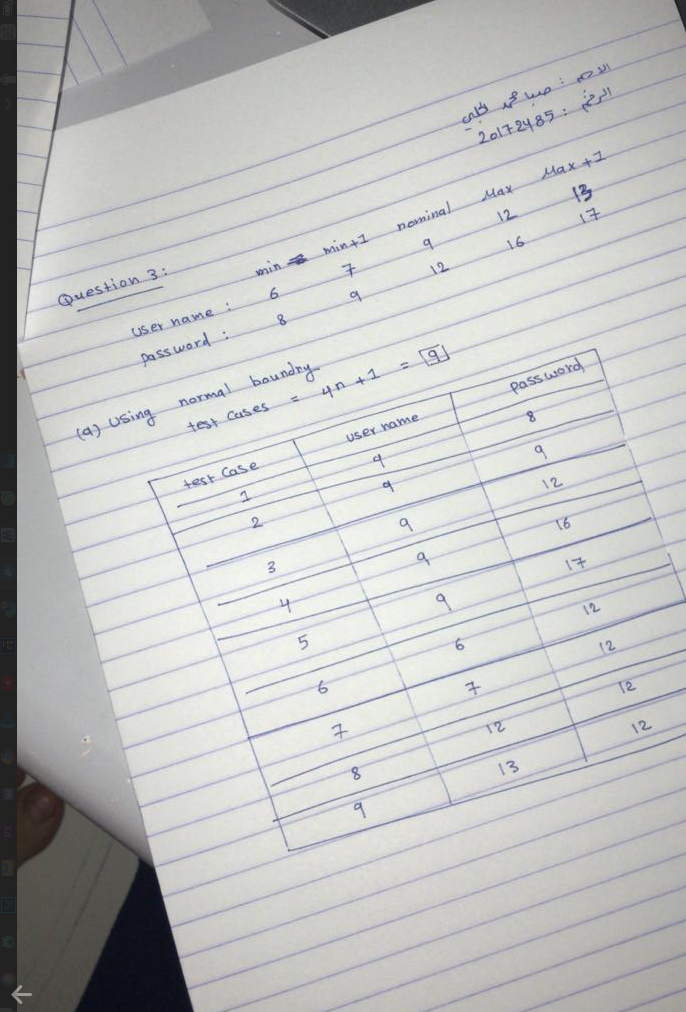 الاسم : صبا محمد
الرقم : 20172485
Question 3:
min min+1 nominal Max Max+1
user name : 6 7 9 12 13
password : 8 9 12 16 17
(a) Using normal boundry
test cases = 4n+1 = 9
test case user name password
1 9 8
2 9 9
3 9 12
4 9 16
5 9 17
6 6 12
7 7 12
8 12 12
9 13 12